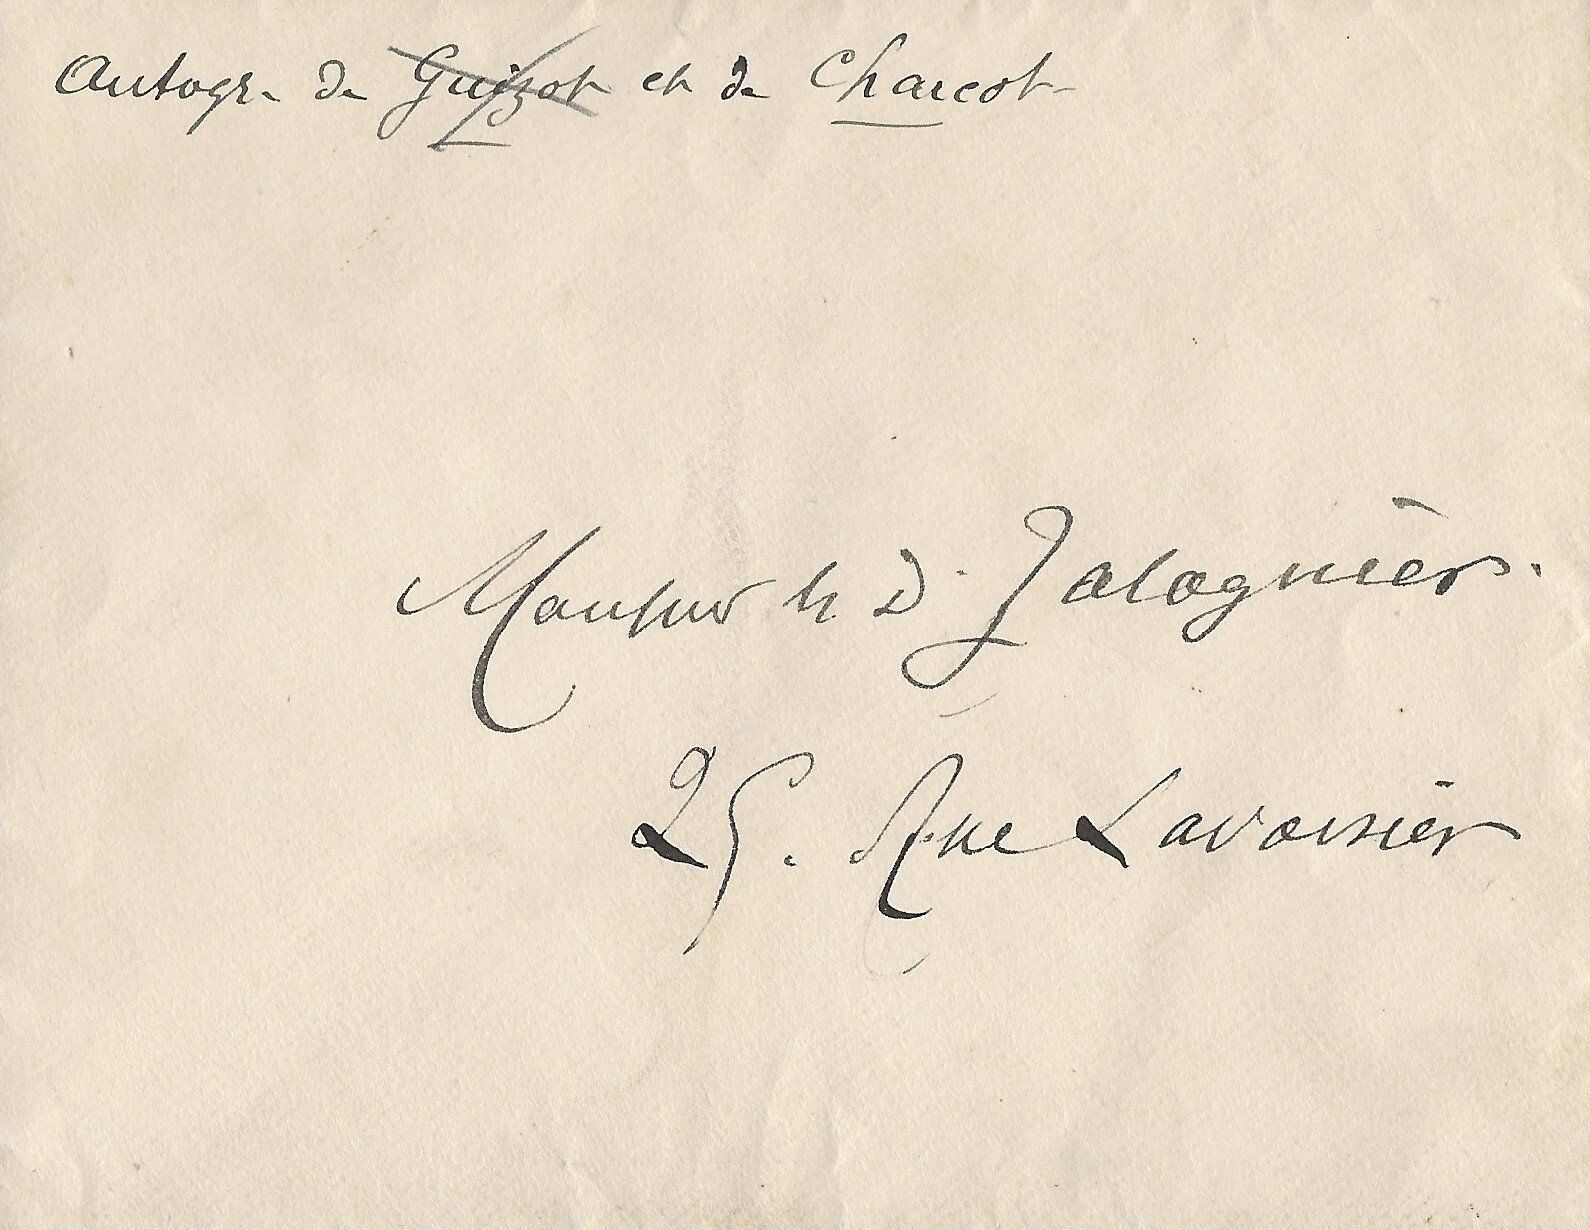 Autogr. de Guizot et de Charcot
Monsieur le D. Jalaguier.
25. Rue Lavoisier